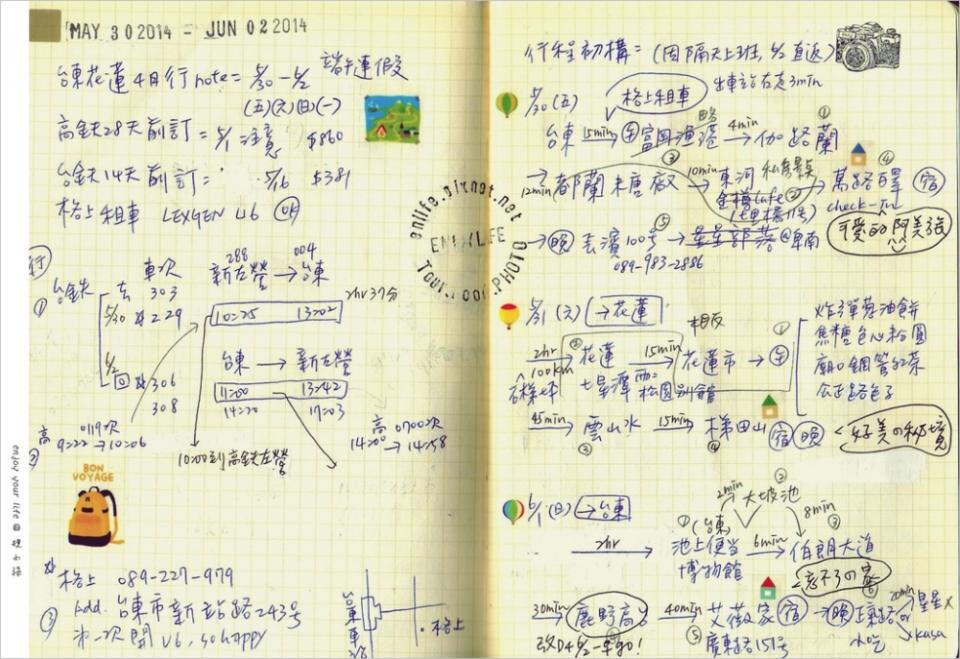 MAY 30 2014 - JUN 02 2014
台東花蓮4日行note= 5/30 - 6/2 端午連假
(五)(六)(日)(一)
高鐵28天前訂= 5/1 注意 $860
台鐵14天前訂= 5/16 $381
格上租車 LEXGEN U6 OK
行
① 台鐵 車次
去 303
5/30 229
288 004
新左營 → 台東
2hr 37分
10:25 13:02
台東 → 新左營
11:00 13:42
14:20 17:03
6/2 回 306
308
高 0119次
② 9:22 → 10:06
高 0700次
14:20 → 14:58
10:00到高鐵左營
BON VOYAGE
格上 089-227-979
③ Add. 台東市新站路243號
第一次開U6, so happy
台東車站
格上
enjoy your life
enlife.pixnet.net
ENJOY LIFE
Tour.Food.PHOTO
行程初構= (因隔天上班, 6/2直返)
5/30 (五) 格上租車 出車站右走3min
台東 15min → 富岡漁港 4min → 加路蘭 ①
→ 12min 都蘭糖廠 ③ 10min → 東河 私房景點 萬路曙 ④ 宿
金樽Cafe ②
(七里橋11號)
check-in
可愛的阿美族
→ 晚 去濱100号 ⑤ → 星星部落@卑南
089-983-2886
5/31 (六) → 花蓮
2hr 100km → 花蓮 15min → 花蓮市 → ①
七星潭 松園別館
相反
炸彈蔥油餅
焦糖包心粉圓
廟口鋼管紅茶
公正路包子
45min → 雲山水 ③ 15min → 梯田山 ④ 宿 晚 好美の秘境
6/1 (日) → 台東
2min 大坡池 ② 8min
2hr → ① (台東) 池上便當博物館 6min → 伯朗大道 ③
忘不了の美
30min → 鹿野高台 40min → 艾薇家 宿 → 晚 正氣路小吃 20min 星星
⑤ 廣東路151号 or kasa
改D4 6/2一早90!